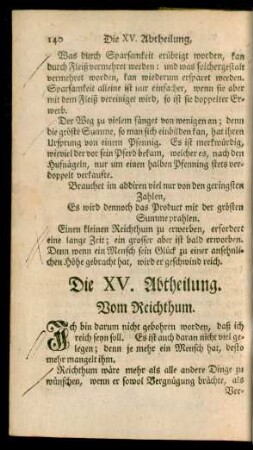 140 Die XV. Abtheilung,
Was durch Sparsamkeit erübrigt worden, kan
durch Fleiß vermehret werden: und was solchergestalt
vermehret worden, kan wiederum ersparet werden.
Sparsamkeit alleine ist nur einfacher, wenn sie aber
mit dem Fleiß vereiniget wird, so ist sie doppelter Er-
werb.
Der Weg zu vielem fänget von wenigen an; denn
die gröste Summe, so man sich einbilden kan, hat ihren
Ursprung von einem Pfennig. Es ist merkwürdig,
wieviel der vor sein Pferd bekam, welcher es, nach den
Hufnägeln, nur um einen halben Pfenning stets ver-
doppelt verkaufte.
Brauchet im addiren viel nur von den geringsten
Zahlen,
Es wird dennoch das Product mit der grösten
Summe prahlen.
Einen kleinen Reichthum zu erwerben, erfordert
eine lange Zeit; ein grosser aber ist bald erworben.
Denn wenn ein Mensch sein Glück zu einer ansehnli-
chen Höhe gebracht hat, wird er geschwind reich.
Die XV. Abtheilung.
Vom Reichthum.
Ich bin darum nicht gebohren worden, daß ich
reich seyn soll. Es ist auch daran nicht viel ge-
legen; denn je mehr ein Mensch hat, desto
mehr mangelt ihm.
Reichthum wäre mehr als alle andere Dinge zu
wünschen, wenn er sowol Vergnügung brächte, als
Ver-